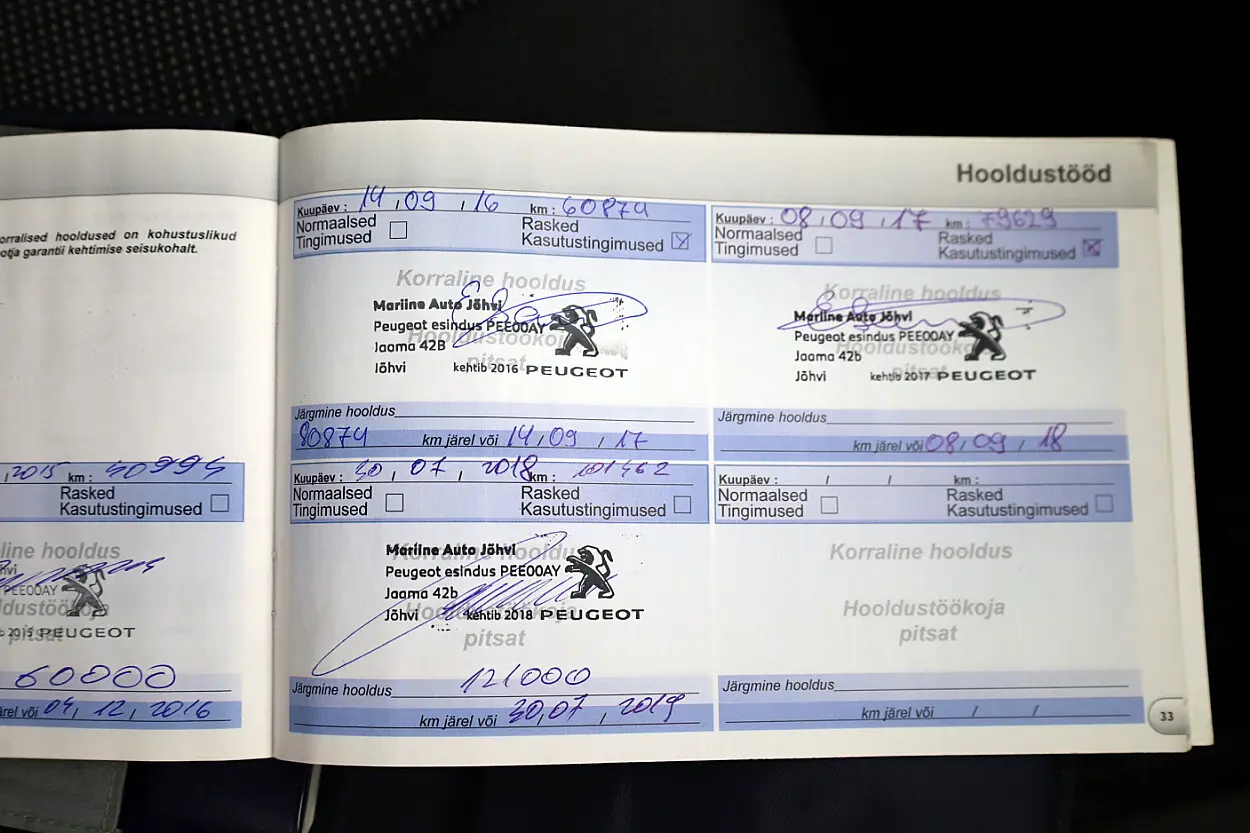 Hooldustööd
orralised hooldused on kohustuslikud
otja garantii kehtimise seisukohalt.
, 2015 km :
Rasked
Kasutustingimused
line hooldus
hvi
PEE00AY
ldustöökoja
2015 PEUGEOT
pitsat
60000
ärel või 04, 12, 2016
Kuupäev : 14 , 09 , 16 km : 60874
Normaalsed
Tingimused
Rasked
Kasutustingimused
Korraline hooldus
Mariine Auto Jõhvi
Peugeot esindus PEE00AY
Hooldustöökoja
Jaama 42B
pitsat
Jõhvi kehtib 2016 PEUGEOT
Järgmine hooldus
80874 km järel või 14 , 09 , 17
Kuupäev : 08 , 09 , 17 km : 79629
Normaalsed
Tingimused
Rasked
Kasutustingimused
Korraline hooldus
Mariine Auto Jõhvi
Peugeot esindus PEE00AY
Hooldustöökoja
Jaama 42b
pitsat
Jõhvi kehtib 2017 PEUGEOT
Järgmine hooldus
km järel või 08 , 09 , 18
Kuupäev : 30 , 07 , 2018 km : 101462
Normaalsed
Tingimused
Rasked
Kasutustingimused
Korraline hooldus
Mariine Auto Jõhvi
Peugeot esindus PEE00AY
Jaama 42b
Hooldustöökoja
Jõhvi kehtib 2018 PEUGEOT
pitsat
Järgmine hooldus 121000
km järel või 30,07 , 2019
Kuupäev : / / km :
Normaalsed
Tingimused
Rasked
Kasutustingimused
Korraline hooldus
Hooldustöökoja
pitsat
Järgmine hooldus
km järel või / /
33